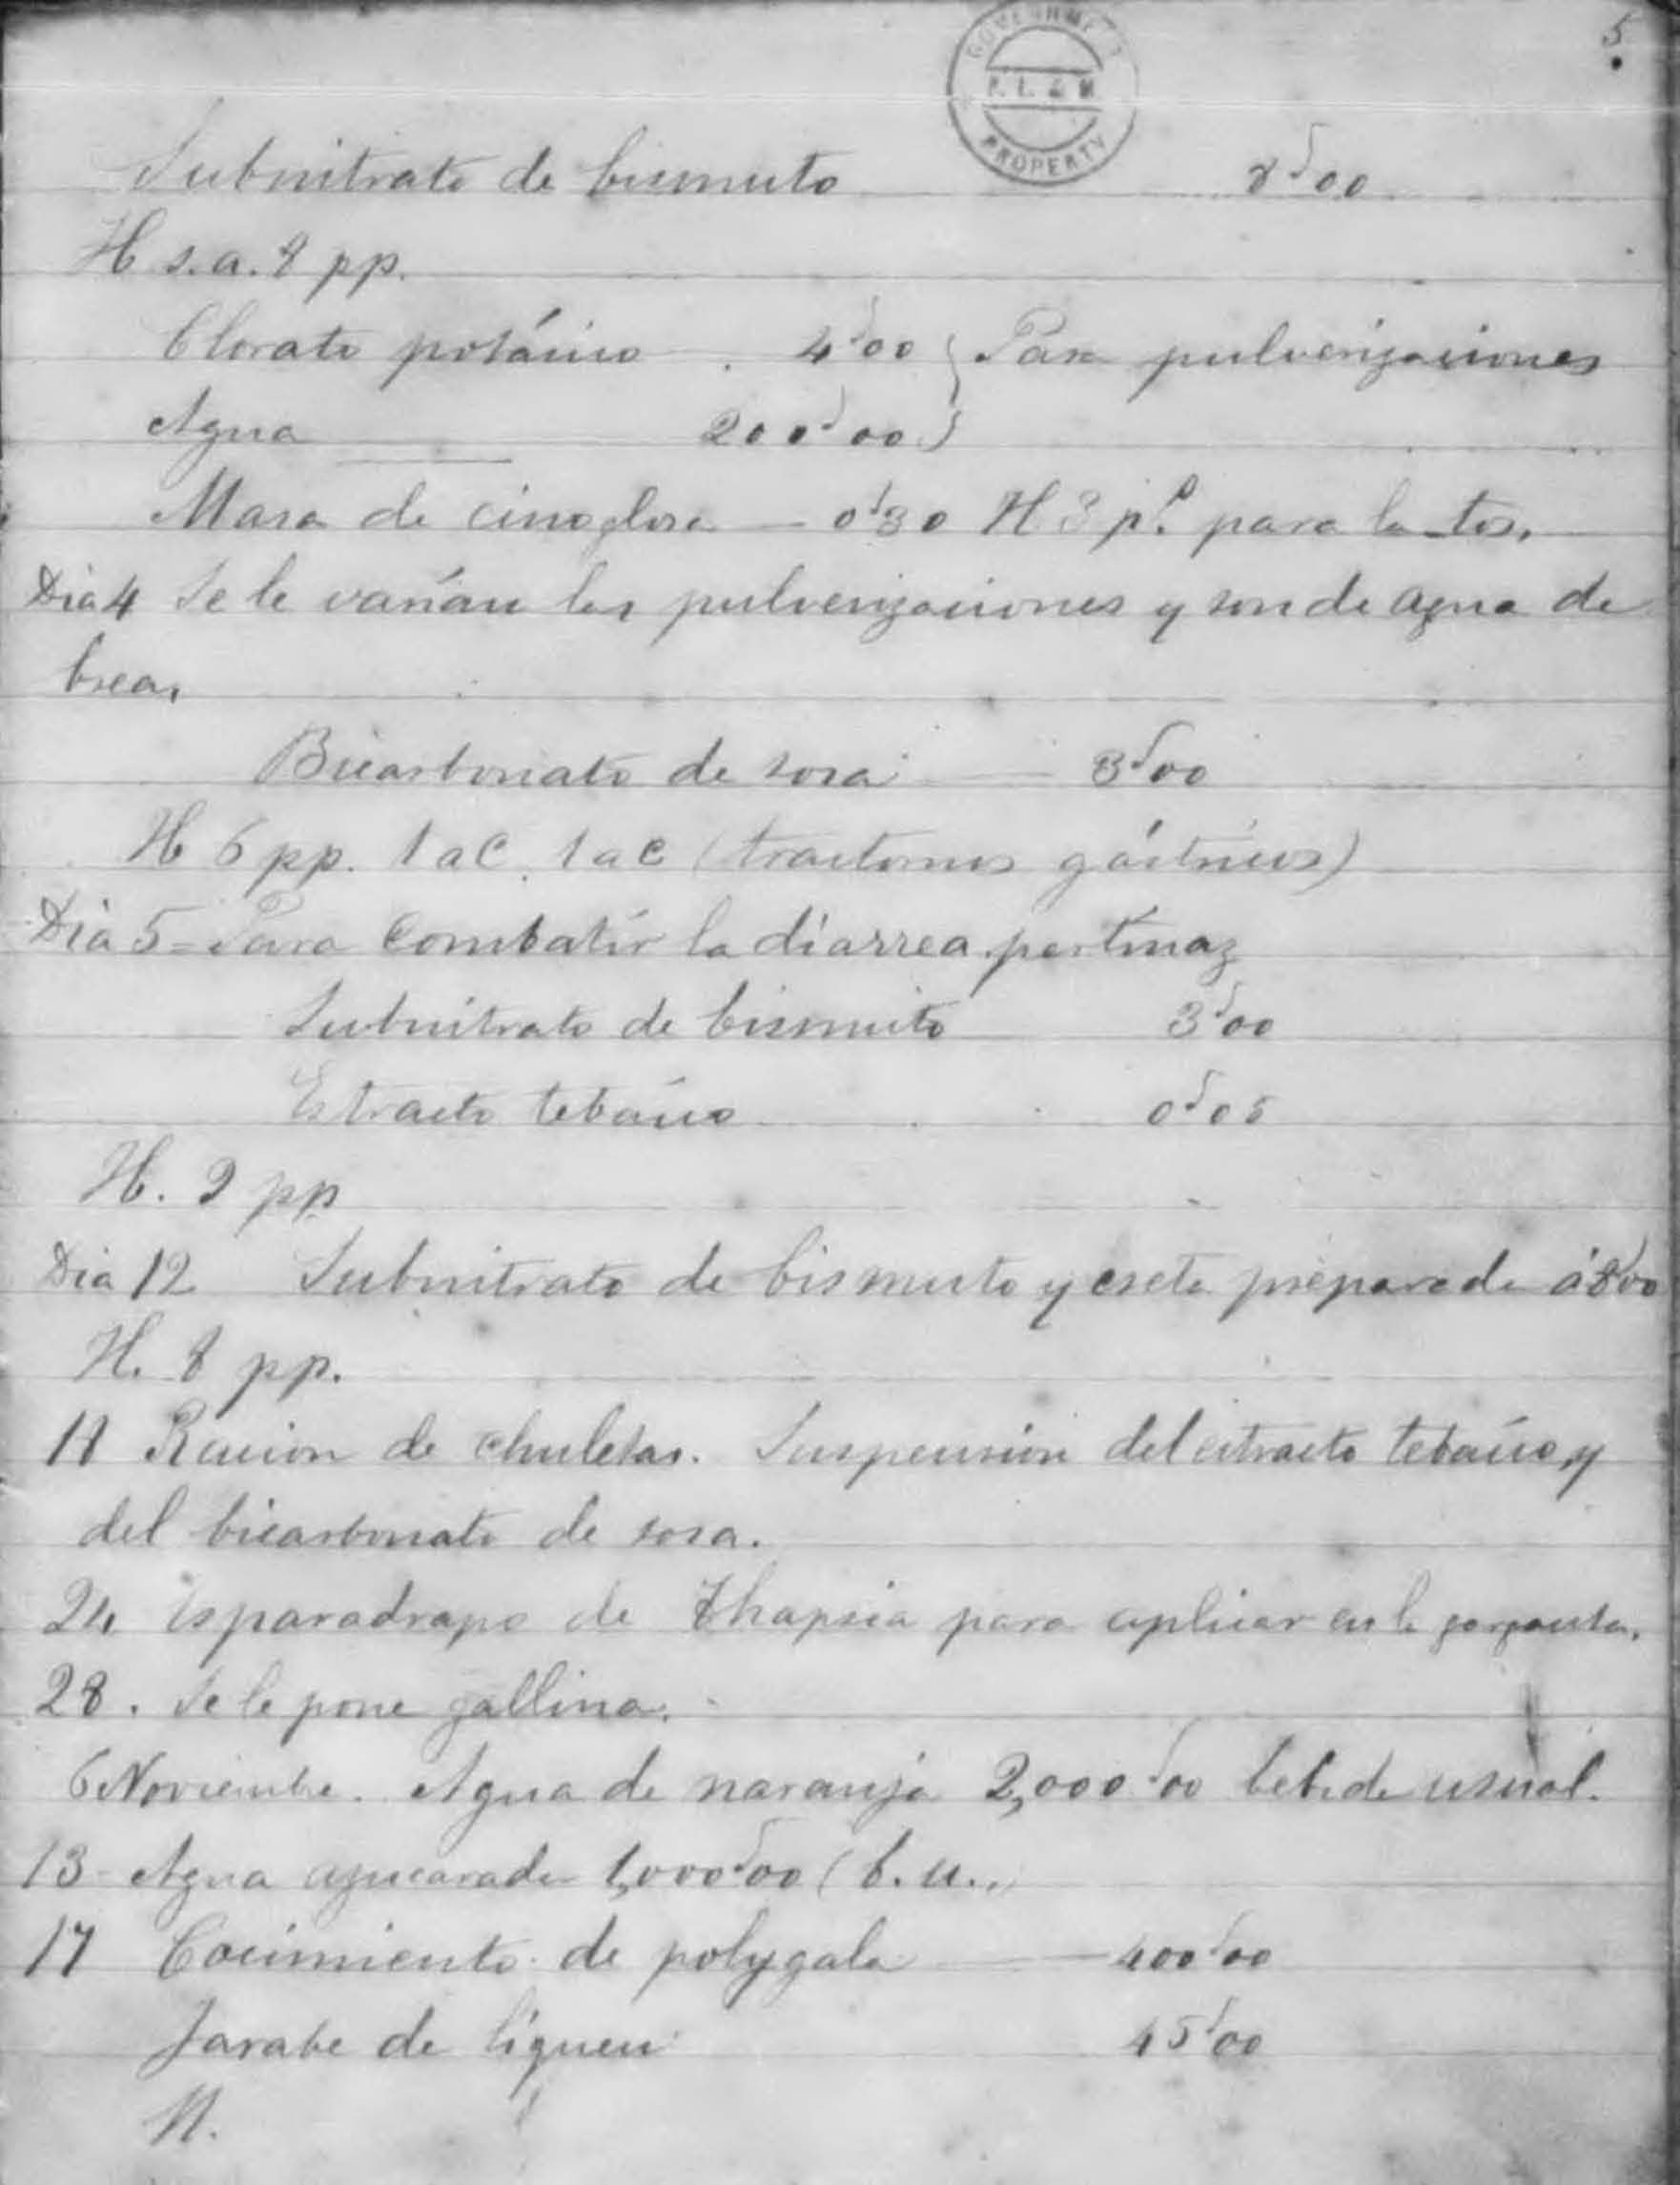 5.
GOVERNMENT
P. L. & M.
PROPERTY
Subnitrato de bismuto 8'00
H s.a. 8 pp.
Clorato potásico . 4'00 } Para pulverizaciones
Agua 200'00 }
Masa de cinoglosa — 0'30 H 3 p.s para la tos.
Dia 4 Se le varían las pulverizaciones y son de agua de
brea.
Bicarbonato de sosa 3'00
H 6 pp. 1 a C. 1 a C (trastornos gástricos)
Dia 5 = Para Combatir la diarrea pertinaz
Subnitrato de bismuto 3'00
Estracto tebáico 0'05
H. 9 pp
Dia 12 Subnitrato de bismuto y creta preparada á 8'00
H. 8 pp.
18 Racion de chuletas. Suspension del estracto tebáico y
del bicarbonato de sosa.
24 Esparadrapo de Thapsia para aplicar en la garganta.
28. Se le pone gallina.
6 Noviembre. Agua de naranja 2,000'00 bebida usual.
13 Agua azucarada 1,000'00 (b. u.,
17 Cocimiento de polygala — 400'00
Jarabe de liquen 45'00